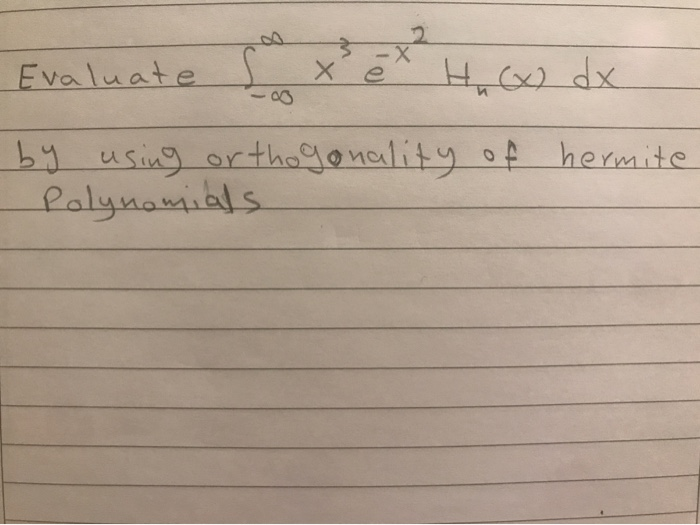 Evaluate ∫_{-∞}^{∞} x³ e^{-x²} Hₙ(x) dx
by using orthogonality of hermite
Polynomials